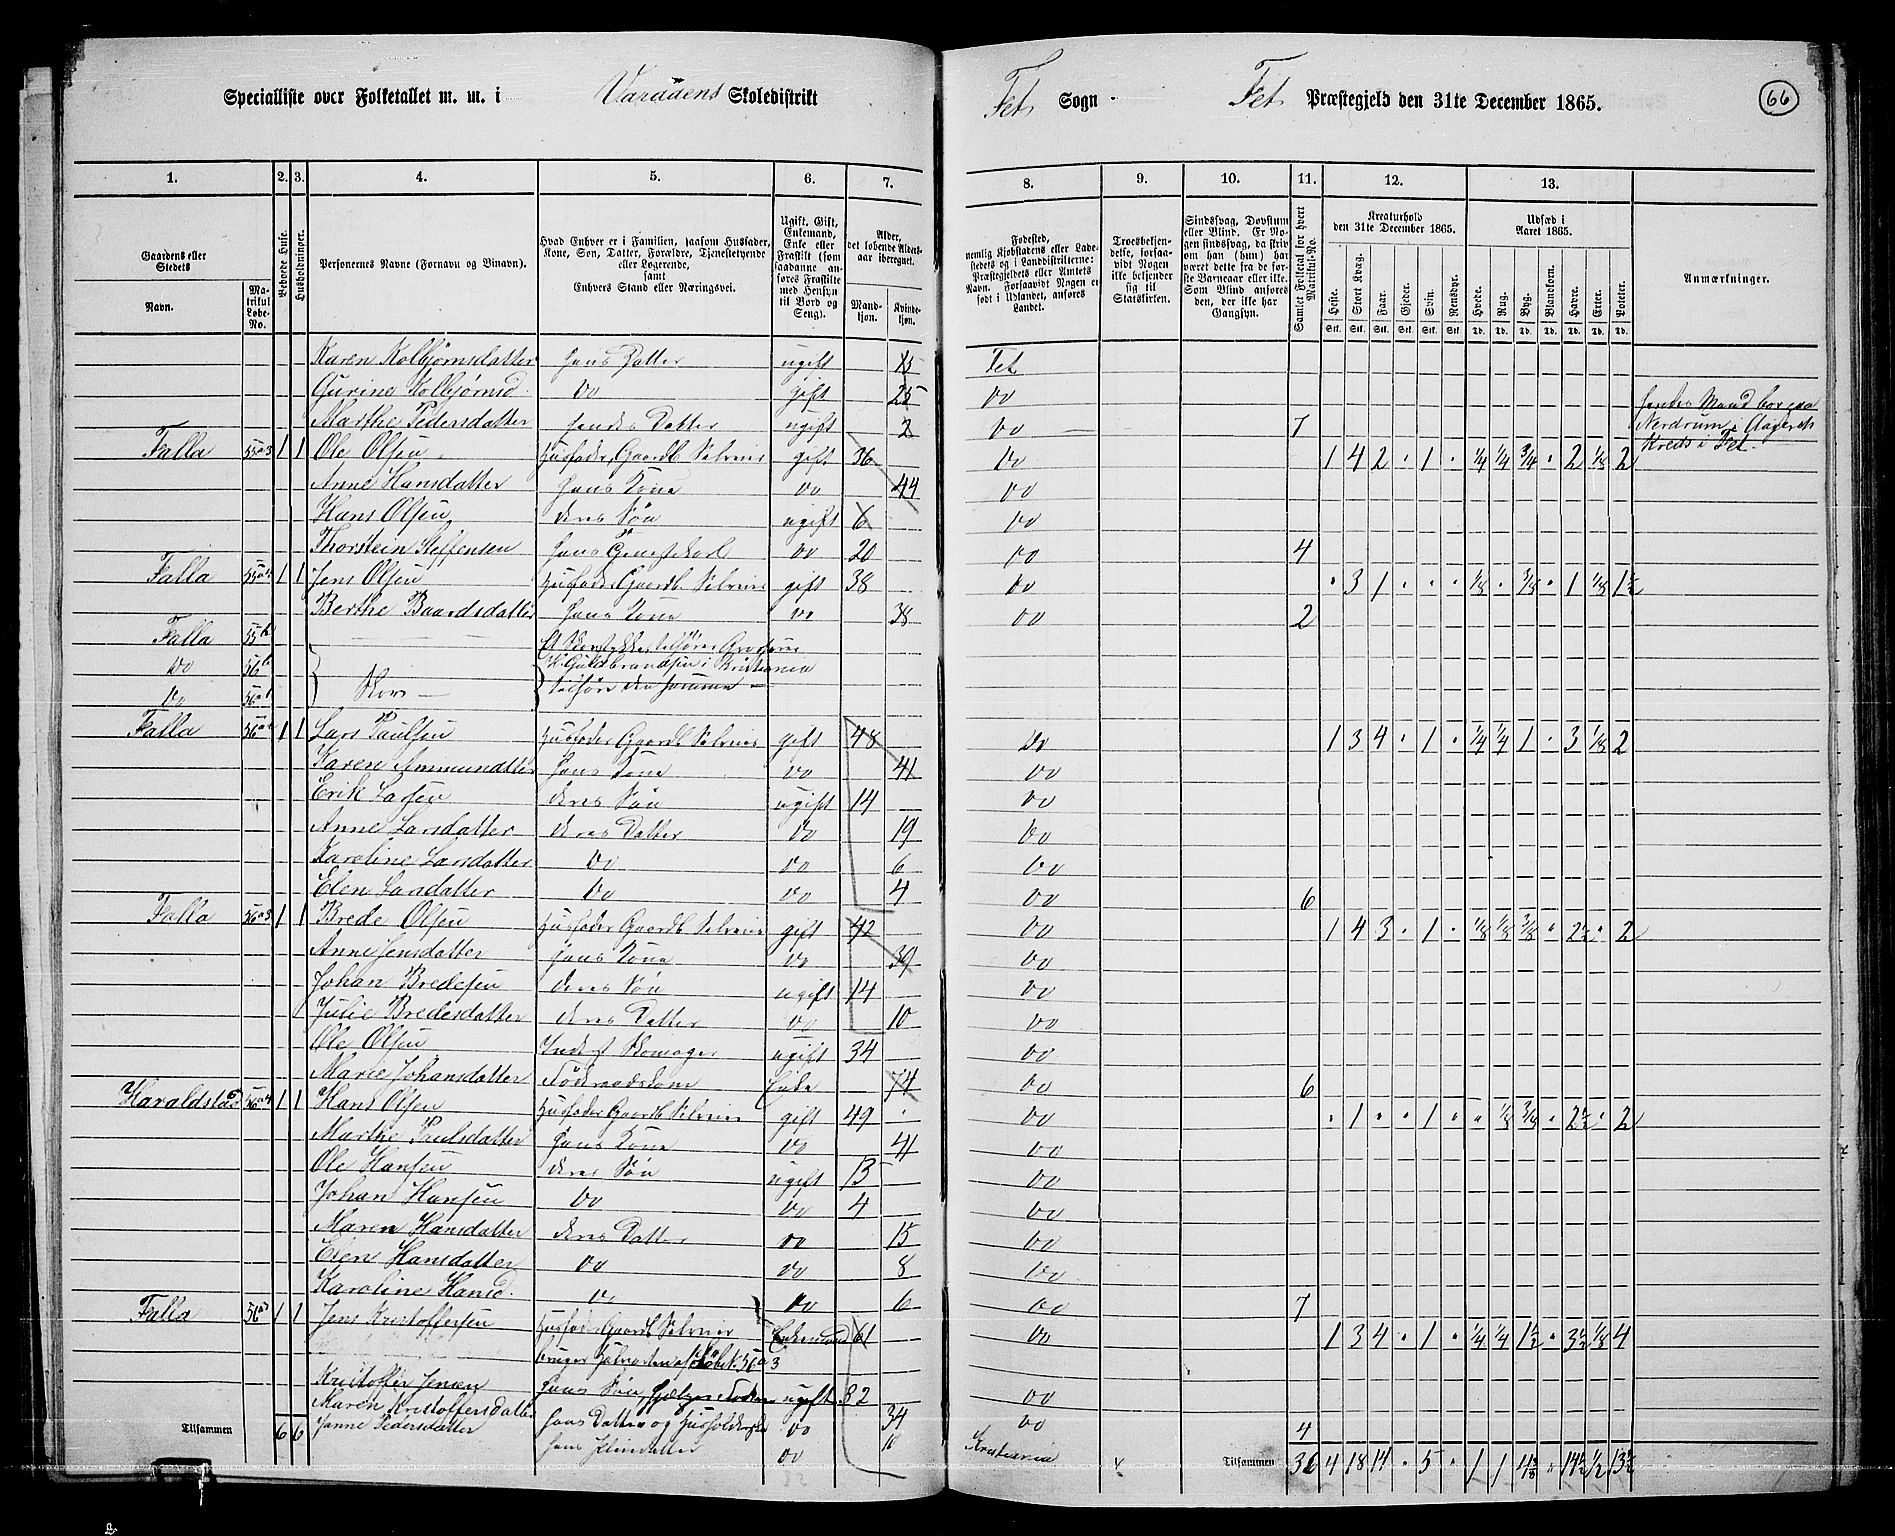 Specialliste over Folketallet m. m. i Varaaens Skoledistrikt Fet Sogn Fet Præstegjeld den 31te December 1865. 66
1. 2. 3. 4. 5. 6. 7. 8. 9. 10. 11. 12. 13.
Gaardens eller Stedets
Navn.
Matrikul Løbe-No.
Beboede Huse.
Husholdninger.
Personernes Navne (Fornavn og Tilnavn).
Hvad Enhver er i Familien, saasom Husfader, Kone, Søn, Datter, Forældre, Tjenestetyende eller Logerende, samt Enhvers Stand eller Næringsvei.
Ugift, Gift, Enkemand, Enke eller Fraskilt (som saadanne anføres Fraskilte med Hensyn til Bord og Seng).
Alder, det løbende Aldersaar iberegnet.
Mandkjøn. Kvindekjøn.
Fødested, nemlig Kjøbstadens eller Ladestedets og i Landdistrikterne: Præstegjeldets eller Amtets Navn. Forsaavidt Nogen er født i Udlandet, anføres Landet.
Troesbekjendelse, forsaavidt Nogen ikke bekjender sig til Statskirken.
Sindssvag, Døvstum eller Blind. Er Nogen sindssvag, da skriv om han (hun) har været dette fra de første Barneaar eller ikke. Som Blind anføres den, der ikke har Gangsyn.
Samlet Folketal for hvert Matrikul-No.
Kreaturhold den 31te December 1865.
Heste. Stort Kvæg. Faar. Gjeder. Svin. Rensdyr.
Udsæd i Aaret 1865.
Hvede. Rug. Byg. Blandkorn. Havre. Erter. Poteter.
Stk. Stk. Stk. Stk. Stk. Stk. Td. Td. Td. Td. Td. Td. Td.
Anmærkninger.
Karen Kolbjørnsdatter hans Datter ugift 15 Fet
Gurine Kolbjørnsd. Do gift 25 Do hendes Mand bor paa
Marthe Pedersdatter hendes Datter ugift 2 Do 7 Nerdrum i
Falla 55a3 1 1 Ole Olsen Husfader, Gaardb. Selveier gift 36 Do 1 4 2 . 1 . 1/4 1/4 3/4 . 2 1/8 2 Kreds i Fet.
Anne Hansdatter hans Kone Do 44 Do
Hans Olsen deres Søn ugift 6 Do
Thorstein Steffensen hans Do 20 Do 4
Falla 1 1 Jens Olsen Husfader, Gaardb. Selveier gift 38 Do . 3 1 . . . 1/8 . 3/8 . 1 1/8 1½
Berthe Baardsdatter hans Kone Do 38 Do 2
Falla 55b
Do 56b Guldbrandsen i Kristiania
Do Skov tilhører den samme
Falla 1 1 Lars Paulsen Husfader Gaardb. Selveier gift 48 Do 1 3 4 . 1 . 1/4 1/4 1 . 3 1/8 2
Karen Ammundatter hans Kone Do 41 Do
Erik Larsen deres Søn ugift 14 Do
Anne Larsdatter deres Datter Do 19 Do
Karoline Larsdatter Do Do 6 Do
Elen Larsdatter Do Do 4 Do 6
Falla 56a3 1 1 Brede Olsen Husfader Gaardb. Selveier gift 42 Do 1 4 3 . 1 . 1/8 1/8 3/8 . 2½ . 2
Anne Jensdatter hans Kone Do 39 Do
Johan Bredesen deres Søn ugift 14 Do
Julie Bredesdatter deres Datter Do 10 Do
Ole Olsen Inderst Skomager ugift 34 Do
Marie Johansdatter Føderaadskone Enke 74 Do 6
Haraldstad 56a4 1 1 Hans Olsen Husfader Gaardb. Selveier gift 49 Do . 1 . . 1 . . 1/8 3/8 . 2½ . 2
Marthe Paulsdatter hans Kone Do 41 Do
Ole Hansen deres Søn ugift 13 Do
Johan Hansen Do Do 4 Do
Maren Hansdatter deres Datter Do 15 Do
Elen Hansdatter Do Do 8 Do
Karoline Hansd. Do Do 6 Do 7
Falla 1 1 Jens Kristoffersen Husfader Gaardb. Selveier Enkemand 61 Do 1 3 4 . 1 . 1/4 1/4 1½ . 3½ 1/8 4
bruger
Kristoffer Jensen hans Søn, hjelper Faderen ugift 32 Do
Maren Kristoffersdatter hans Datter og Do 34 Do
Janne Pedersdatter hans Do Kristiania 4
Tilsammen 6 6 Tilsammen 36 4 18 14 . 5 . 1 1 4 3/8 . 14½ 1/2 13½